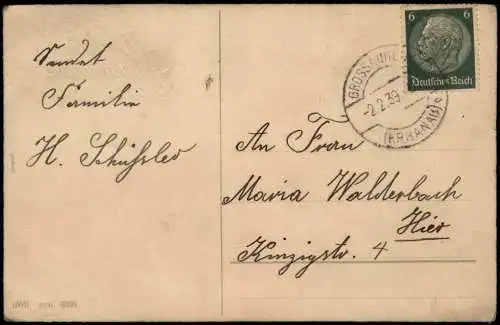 Sendet
Familie
H. Schüssler
6 6
Deutsches Reich
GROSSAUHEIM
-2.2.39
(KR. HANAU)
An Frau
Maria Walderbach
Hier
Kinzigstr. 4